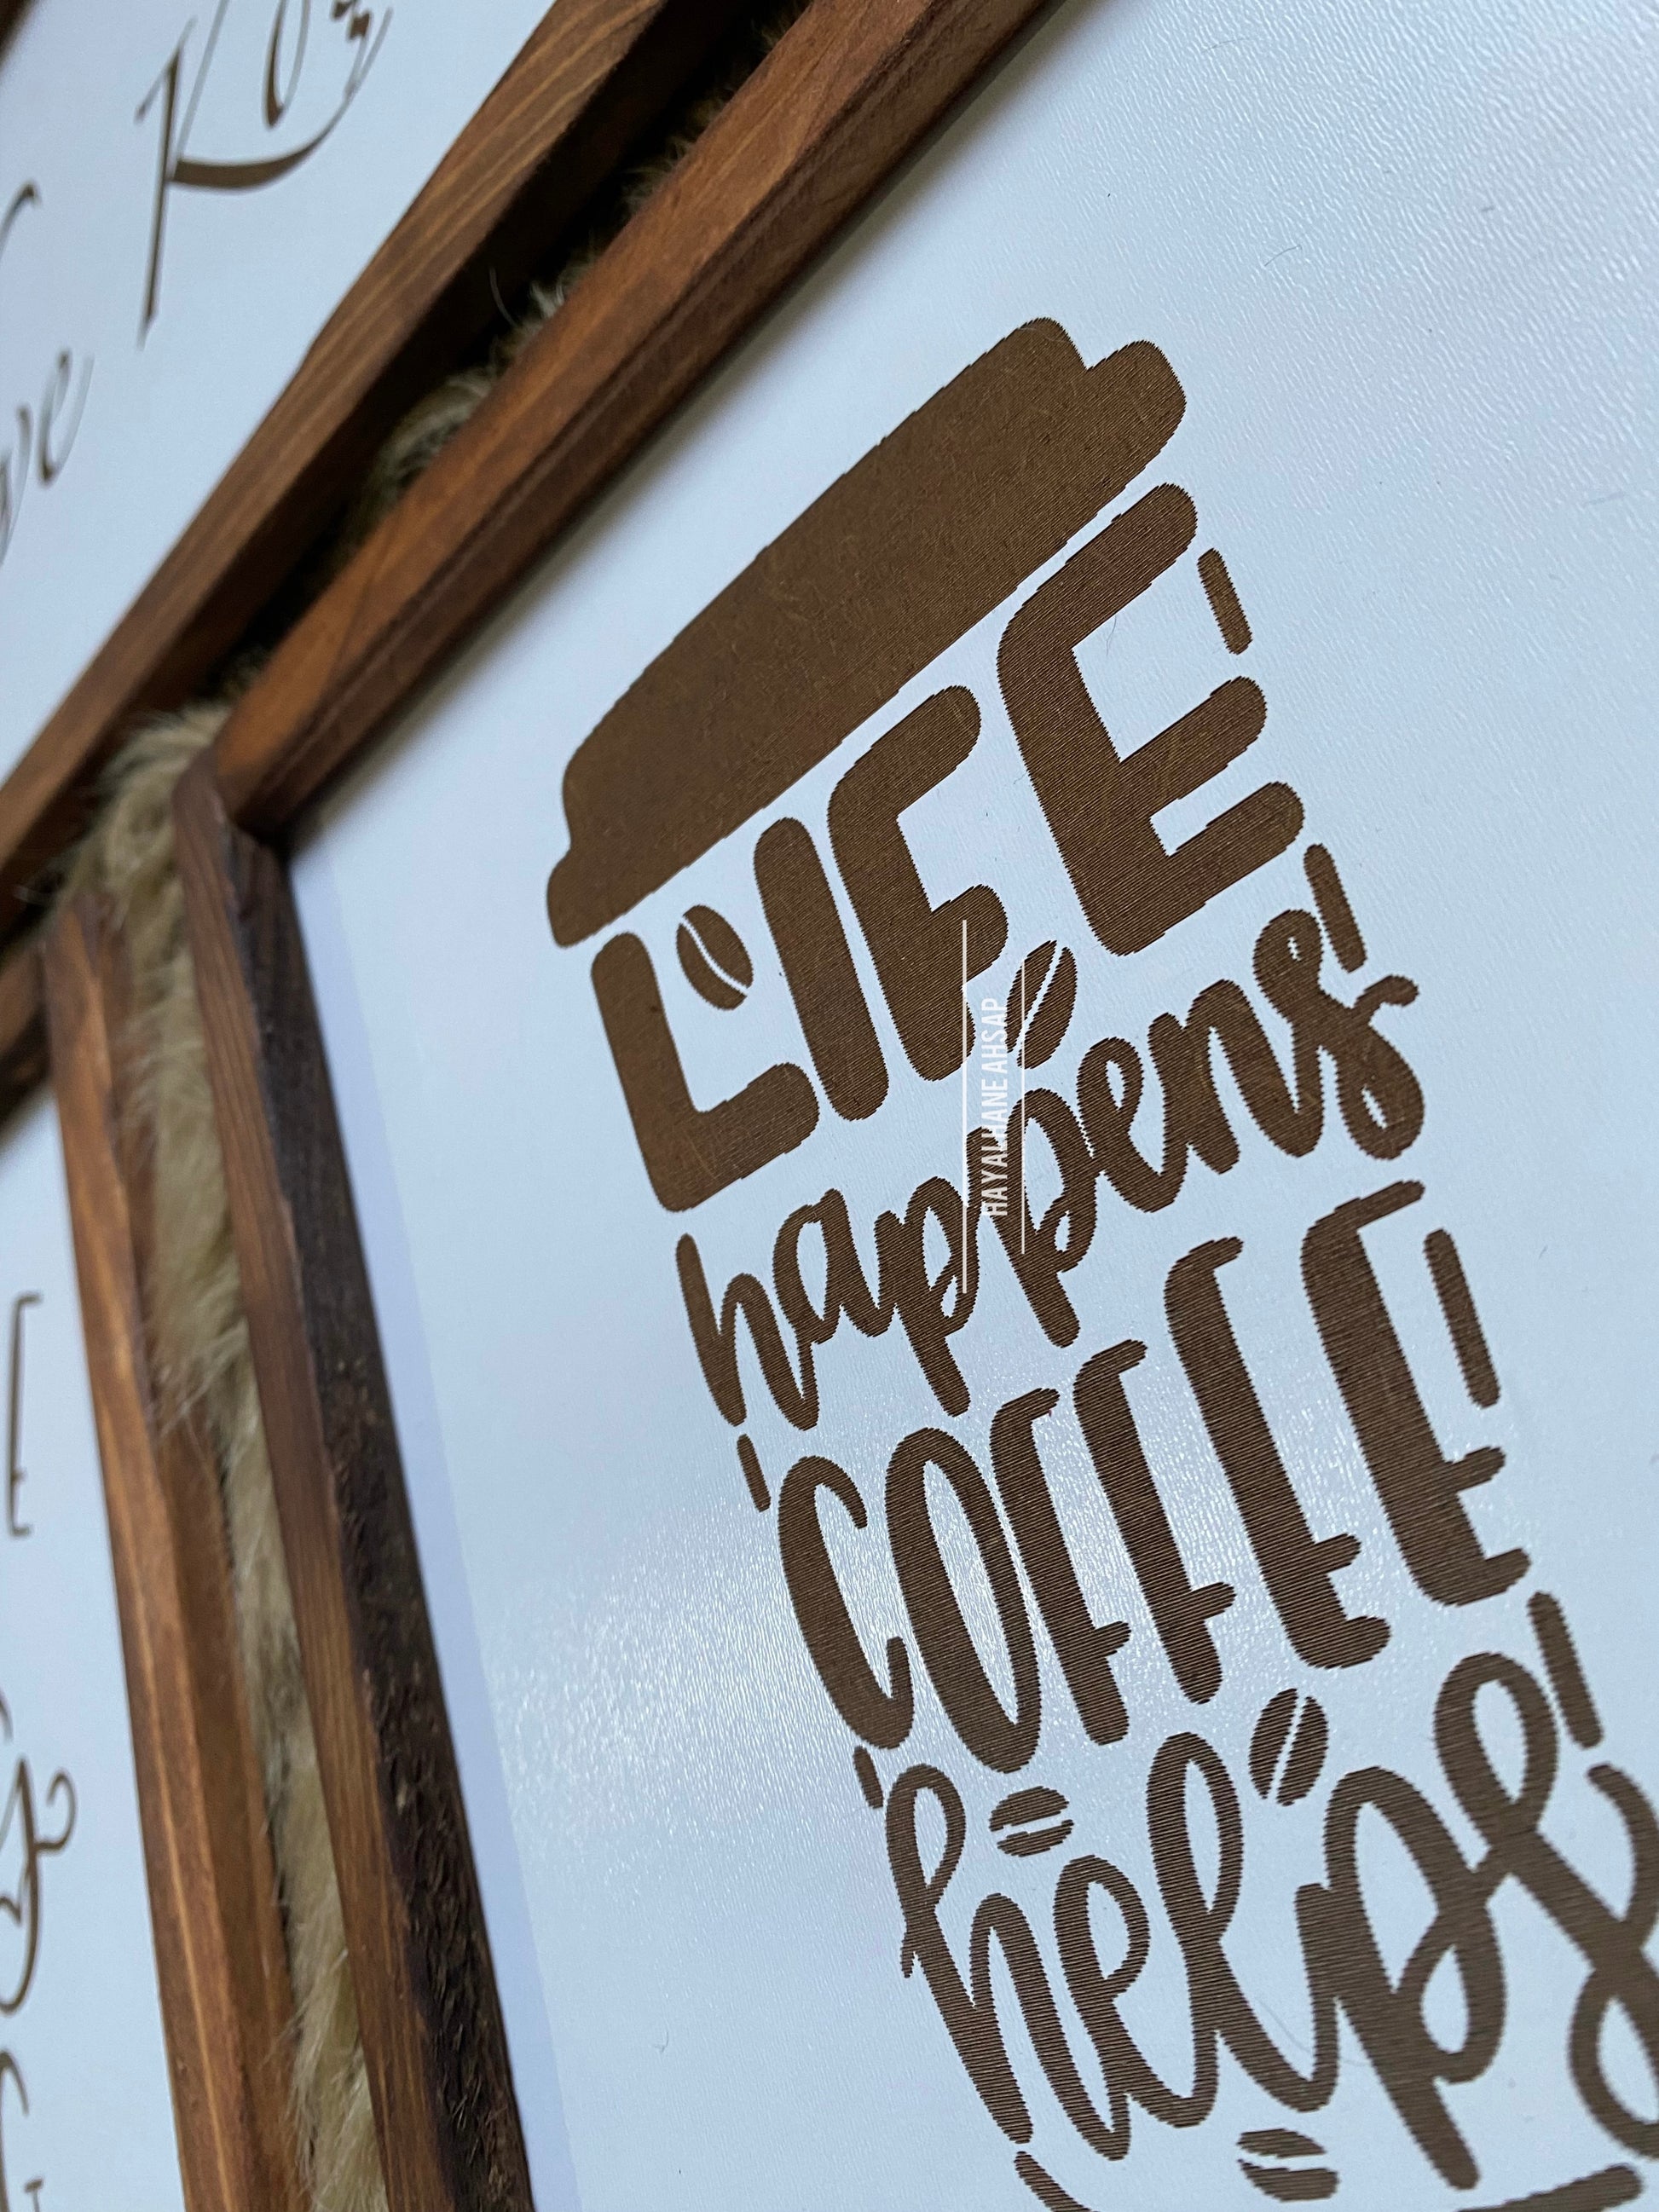 LIFE
happens
COFFEE
helps
HAYALHANE AHSAP